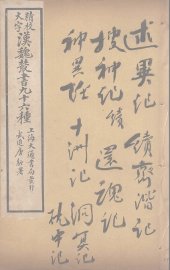 述異記 續齊諧記
搜神記續 還魂記
神異經 十洲記 洞冥記
枕中記
精校大字漢魏叢書九十六種
上海大通書局石印
武進唐駝署